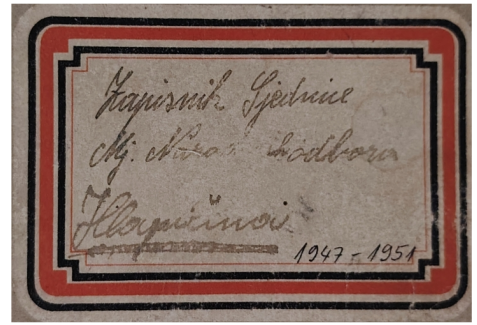 Zapisnik Sjednice
Mj. odbora
Hlapičina
1947-1951